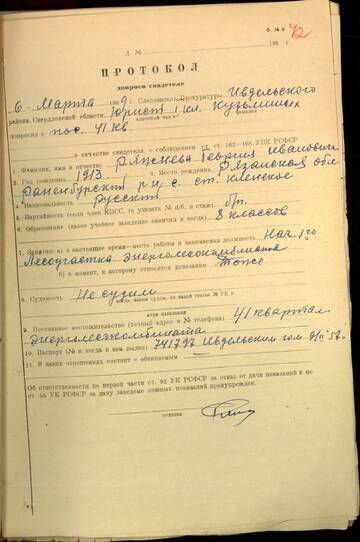 Ф. № 9
42
Л. № 195 г.
ПРОТОКОЛ
допроса свидетеля
6 Марта 1959 г. Следователь Прокуратуры Ивдельского
района Свердловской области Юрист 1 кл. Кузьминых
классный чин
допросил в пос. 41 кв.
в качестве свидетеля, с соблюдением ст. ст. 162—168 УПК РСФСР
1. Фамилия, имя и отчество Ряжнева Георгия Ивановича
2. Год рождения 1913 3. Место рождения Рязанская обл
Раненбургский р-н с. ст. Кленское
4. Национальность русский
5. Партийность (если член КПСС, то указать № п/б. и стаж) бп.
6. Образование (какое учебное заведение окончил и когда) 8 классов
7. Занятие: а) в настоящее время—место работы и занимаемая должность Нач. 1го
Лесоучастка Энерголесокомбината
б) в момент, к которому относятся показания Тоже
8. Судимость Не судим
когда, каким судом, по какой статье УК и
мера наказания
9. Постоянное местожительство (точный адрес и № телефона) 41 квартал
Энерголесокомбината
10. Паспорт (№ и когда и кем выдан) 741797 Ивдельским гом
11. В каких отношениях состоит с обвиняемым —
Об ответственности по первой части ст. 92 УК РСФСР за отказ от дачи показаний и по
ст. 95 УК РСФСР за дачу заведомо ложных показаний предупрежден.
подпись